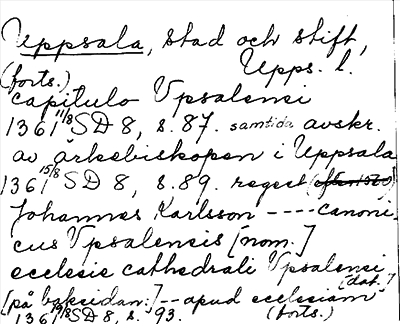 Uppsala, stad och stift,
Upps. l.
(forts.)
capitulo Vpsalensi
1361 11/8 SD 8, s. 87. samtida avskr.
av ärkebiskopen i Uppsala
1361 15/8 SD 8, s. 89. regest (efter 1520)
Johannes Karlsson ---- canoni-
cus Vpsalensis [nom.]
ecclesie cathedrali Vpsalensi
[dat.]
[på baksidan:] -- apud ecclesiam
1361 SD 8, s. 93. (forts.)